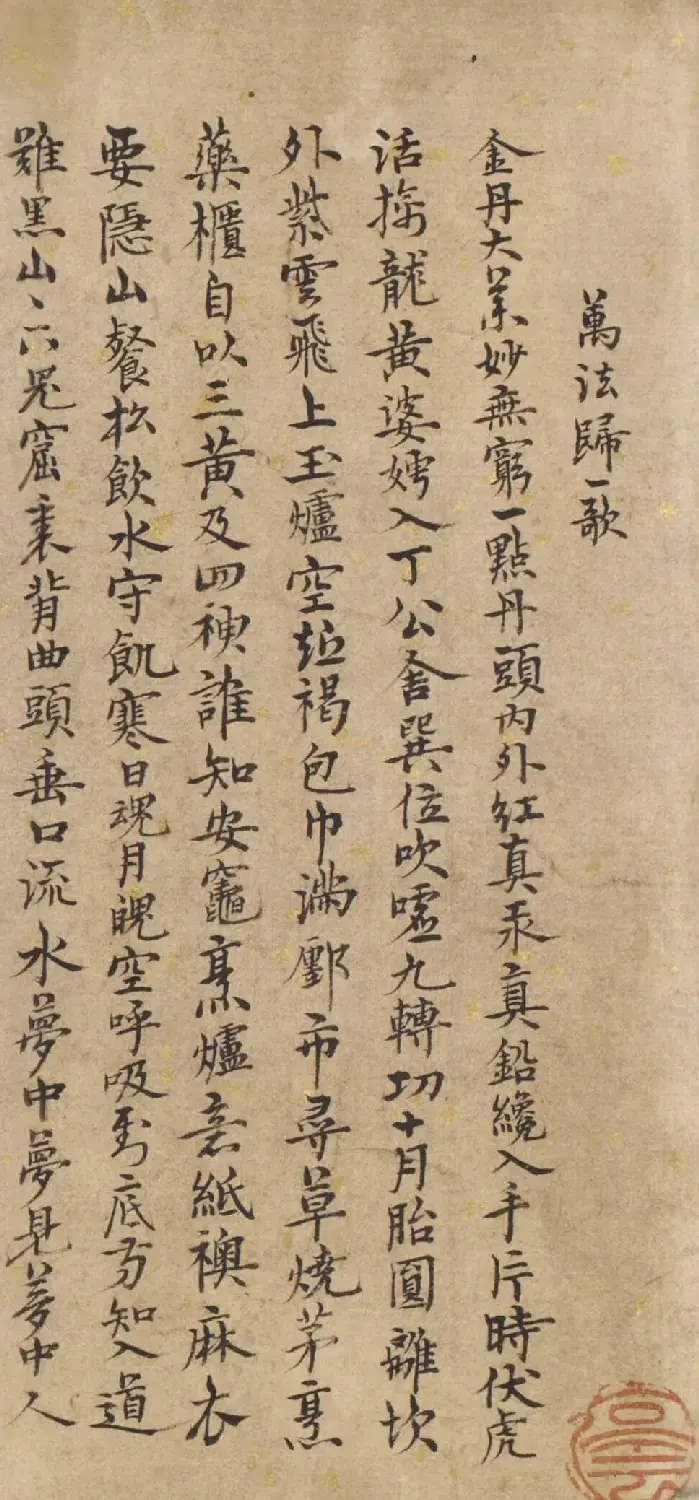 萬法歸一歌
金丹大業妙無窮一點丹頭內外紅真汞真鉛纔入手片時伏虎
活擒龍黃婆娉入丁公舍巽位吹噓九轉功十月胎圓離坎
外紫雲飛上玉爐空短褐包巾滿鄽市尋草燒茅烹
藥櫃自以三黃及四神誰知安竈烹爐意紙襖麻衣
要隱山餐松飲水守飢寒日魂月魄空呼吸到底方知入道
難黑山山下鬼窟裏背曲頭垂口流水夢中夢見夢中人